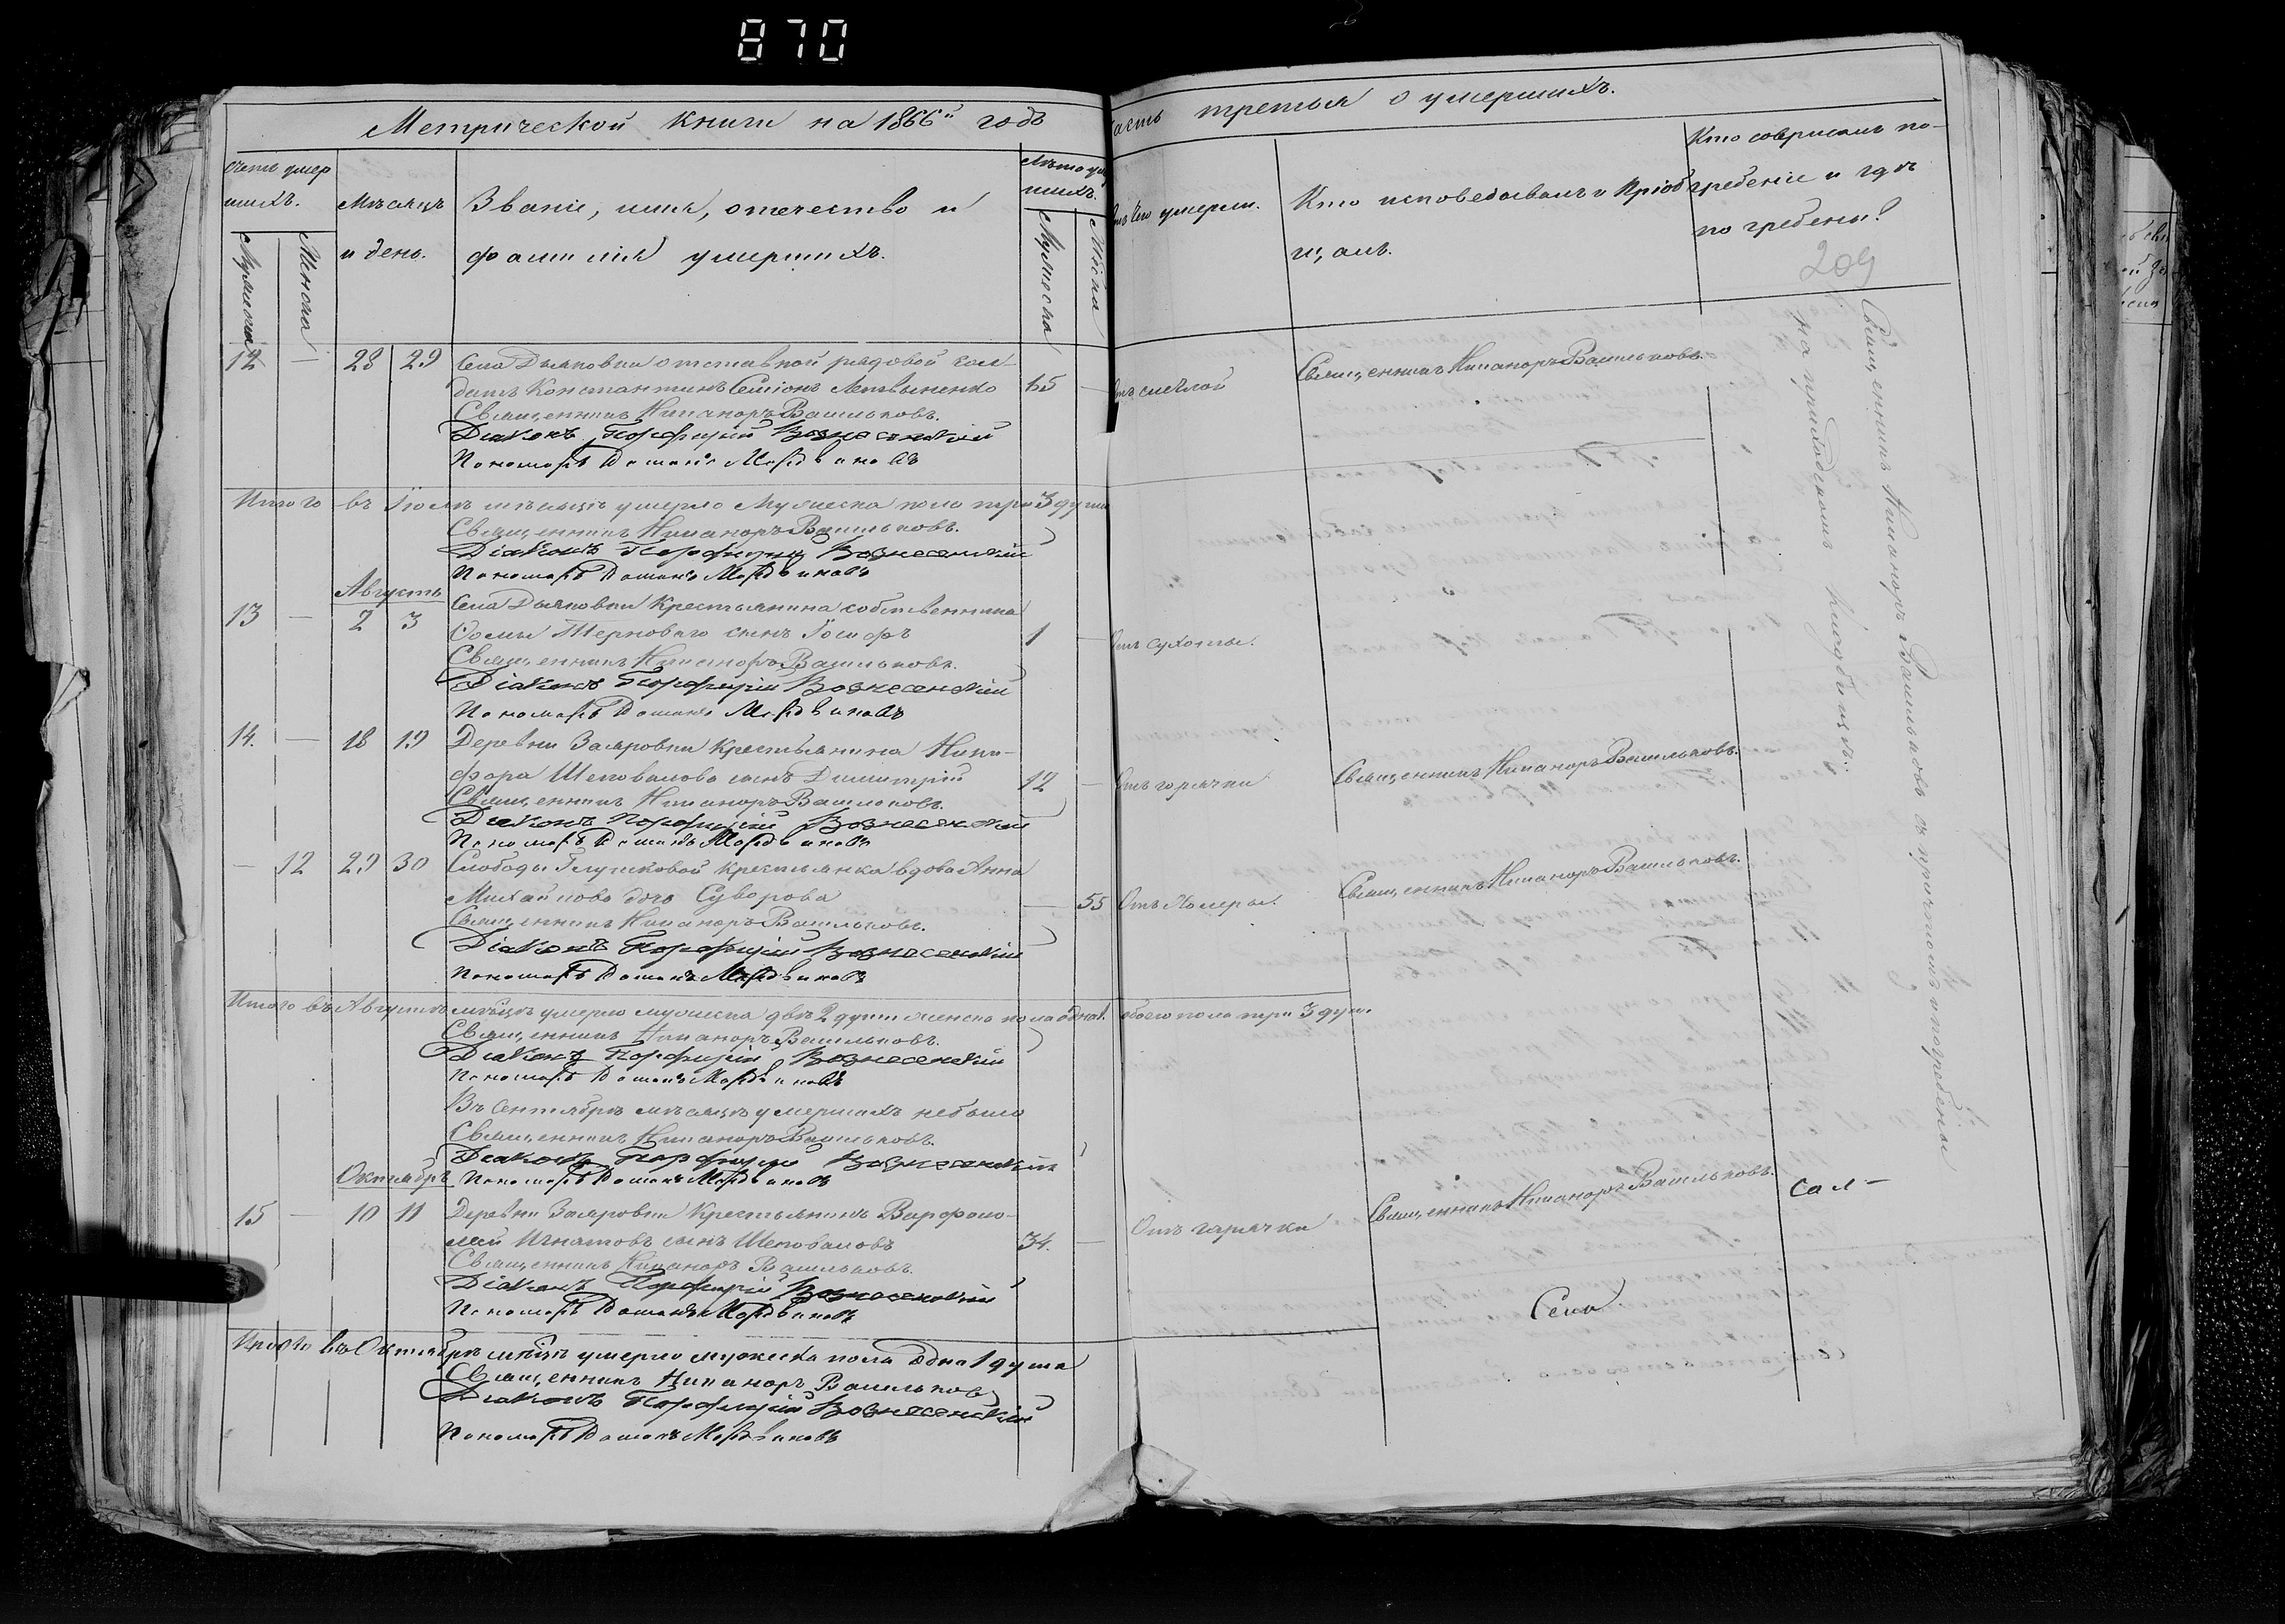 870
Метрической книги на 1866й годъ
Часть третья о умершихъ.
Счетъ умер
шихъ.
Мужеска
Женска
Мѣсяцъ
и день.
Званіе, имя, отечество и
фамилія умершихъ.
Лѣто умер
шихъ.
Мужеска
Женска
Отъ чего умерли.
Кто исповедывалъ и пріоб
щалъ.
Кто совршалъ по-
гребеніе и гдѣ
погребены?
209
12 — 28 29 Села Дьяковки отставной рядовой сол-
датъ Константинъ Семіонъ Литвыненко 65 — Отъ Священникъ Никаноръ Васильковъ.
Священникъ Никаноръ Васильковъ.
Діаконъ Порфирій Вознесенскій
Пономарь Мордвиновъ
Итого въ Іюлѣ мѣсяцѣ умерло Мужеска пола три 3 души
Священникъ Никаноръ Васильковъ.
Діаконъ Порфирій Вознесенскій
Пономарь Мордвиновъ
Августъ
13 — 2 3 Села Дьяковки Крестьянина собственника
Фомы Терноваго сынъ Іосифъ 1 — Отъ сухоты.
Священникъ Никаноръ Васильковъ.
Діаконъ Порфирій Вознесенскій
Пономарь Мордвиновъ
14. — 18 19 Деревни Крестьянина Ники-
фора Шеповалова сынъ Димитрій 12 — Отъ горячки Священникъ Никаноръ Васильковъ.
Священникъ Никаноръ Васильковъ.
Діаконъ Порфирій Вознесенскій
Пономарь Мордвиновъ
— 12 29 30 Слободы Крестьянка вдова Анна
Михайлова дочь Суворова — 55 Отъ Холеры. Священникъ Никаноръ Васильковъ.
Священникъ Никаноръ Васильковъ.
Діаконъ Порфирій Вознесенскій
Пономарь Мордвиновъ
Итого въ Августѣ мѣсяцѣ умерло мужеска двѣ 2 души женска пола одна 1. обоего пола три 3 души.
Священникъ Никаноръ Васильковъ.
Діаконъ Порфирій Вознесенскій
Пономарь Мордвиновъ
Въ Сентябрѣ мѣсяцѣ умершихъ небыло
Священникъ Никаноръ Васильковъ.
Діаконъ Порфирій Вознесенскій
Октябрь Пономарь Мордвиновъ
15 — 10 11 Деревни Крестьянинъ Варфоло-
мей Игнатовъ сынъ Шеповаловъ 34. — Отъ горячки Священникъ Никаноръ Васильковъ.
Священникъ Никаноръ Васильковъ.
Діаконъ Порфирій Вознесенскій
Пономарь Мордвиновъ
Итого въ Октябрѣ мѣсяцѣ умерло мужеска пола одна 1 душа
Священникъ Никаноръ Васильковъ
Діаконъ Порфирій Вознесенскій
Пономарь Мордвиновъ
Священникъ Никаноръ Васильковъ съ причтомъ и погребены
на приходскомъ кладбищѣ.